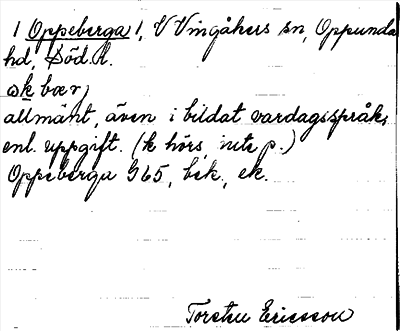 1 Oppeberga 1, V Vingåkers sn, Oppunda
hd, Söd. l.
allmänt, även i bildat vardagsspråk,
enl. uppgift. (k hörs, inte p.)
Oppeberga G65, bek, ek.
Torsten Ericsson